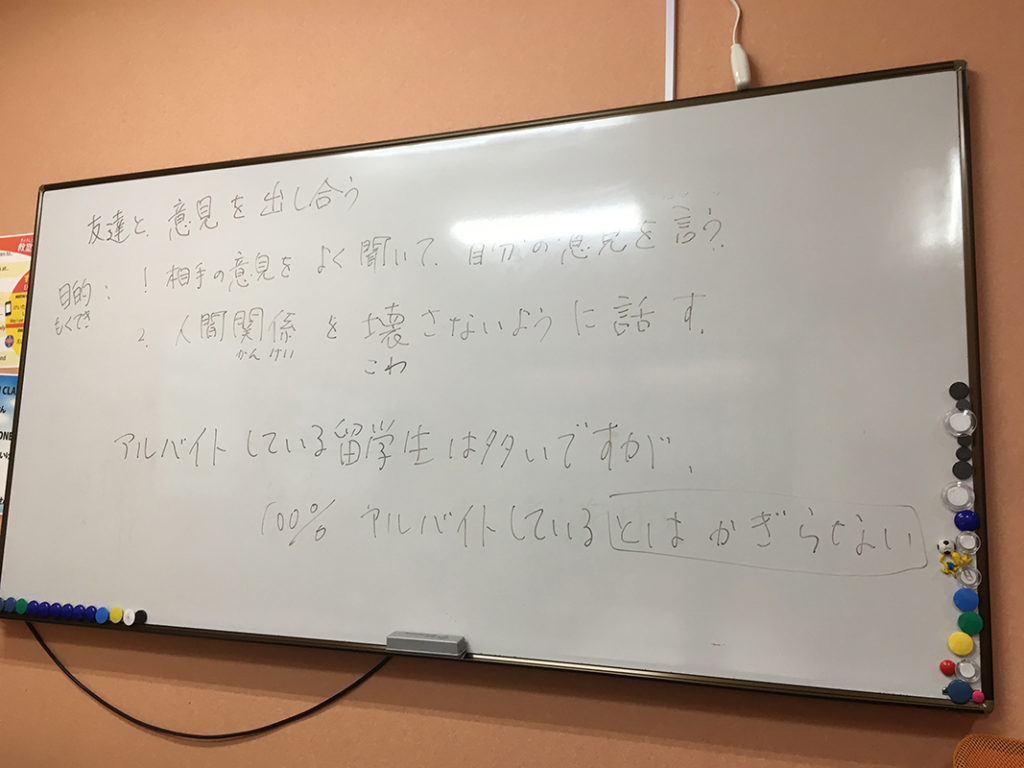 友達と意見を出し合う
目的: 1 相手の意見をよく聞いて、自分の意見を言う。
もくてき
2. 人間関係を壊さないように話す。
かんけい
こわ
アルバイトしている留学生は多いですが、
100% アルバイトしているとはかぎらない
教室
CLA
ONE